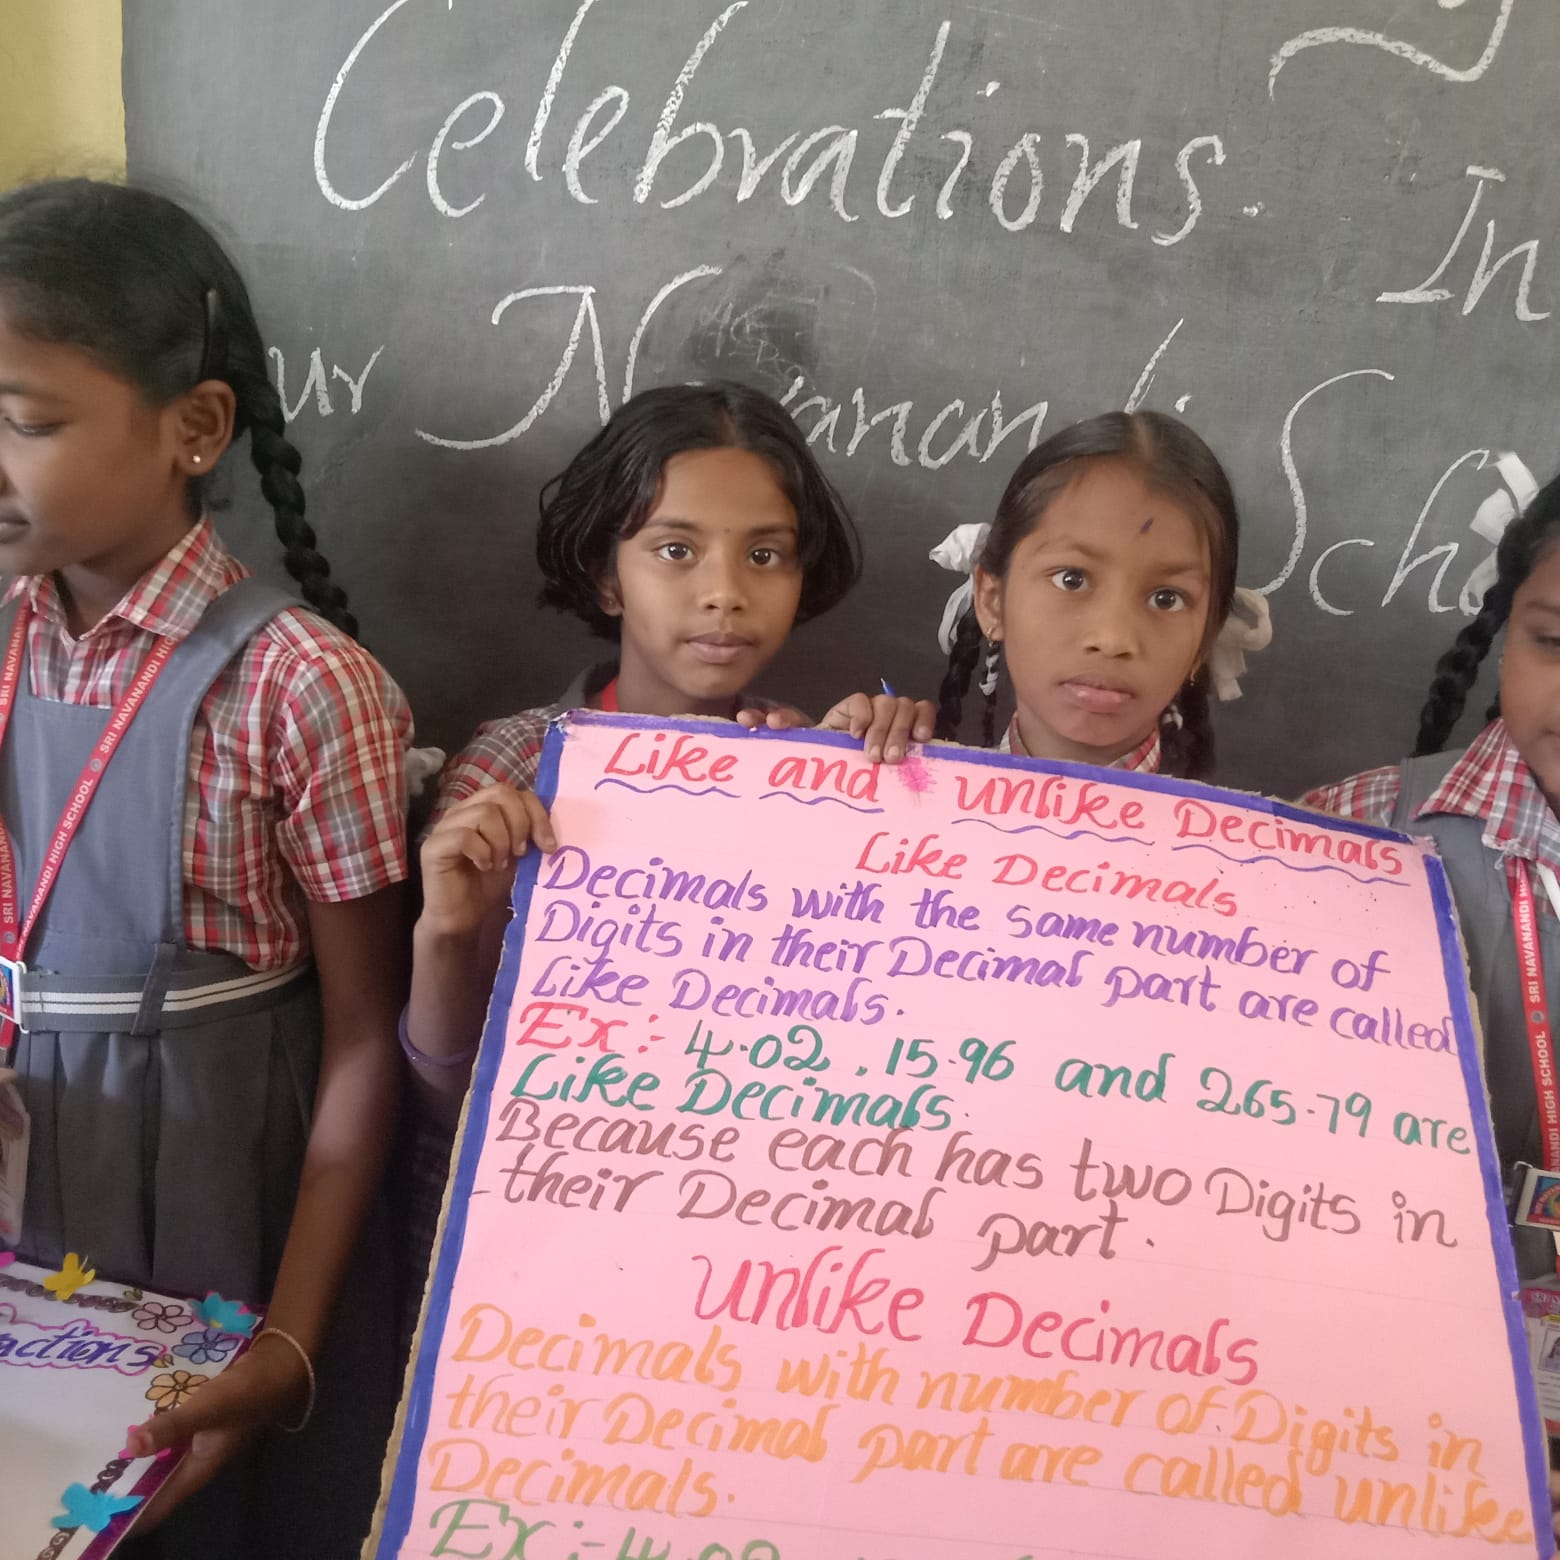 Celebrations. In
ur Navanandi Scho
Like and unlike Decimals
Like Decimals
Decimals with the same number of
Digits in their Decimal part are called
Like Decimals.
Ex:- 4.02, 15.96 and 265.79 are
Like Decimals.
Because each has two Digits in
their Decimal part.
unlike Decimals
Decimals with number of Digits in
their Decimal part are called unlike
Decimals.
Ex:- 4.02
actions
SRI NAVANANDI HIGH SCHOOL
SRI NAVANANDI HIGH SCHOOL